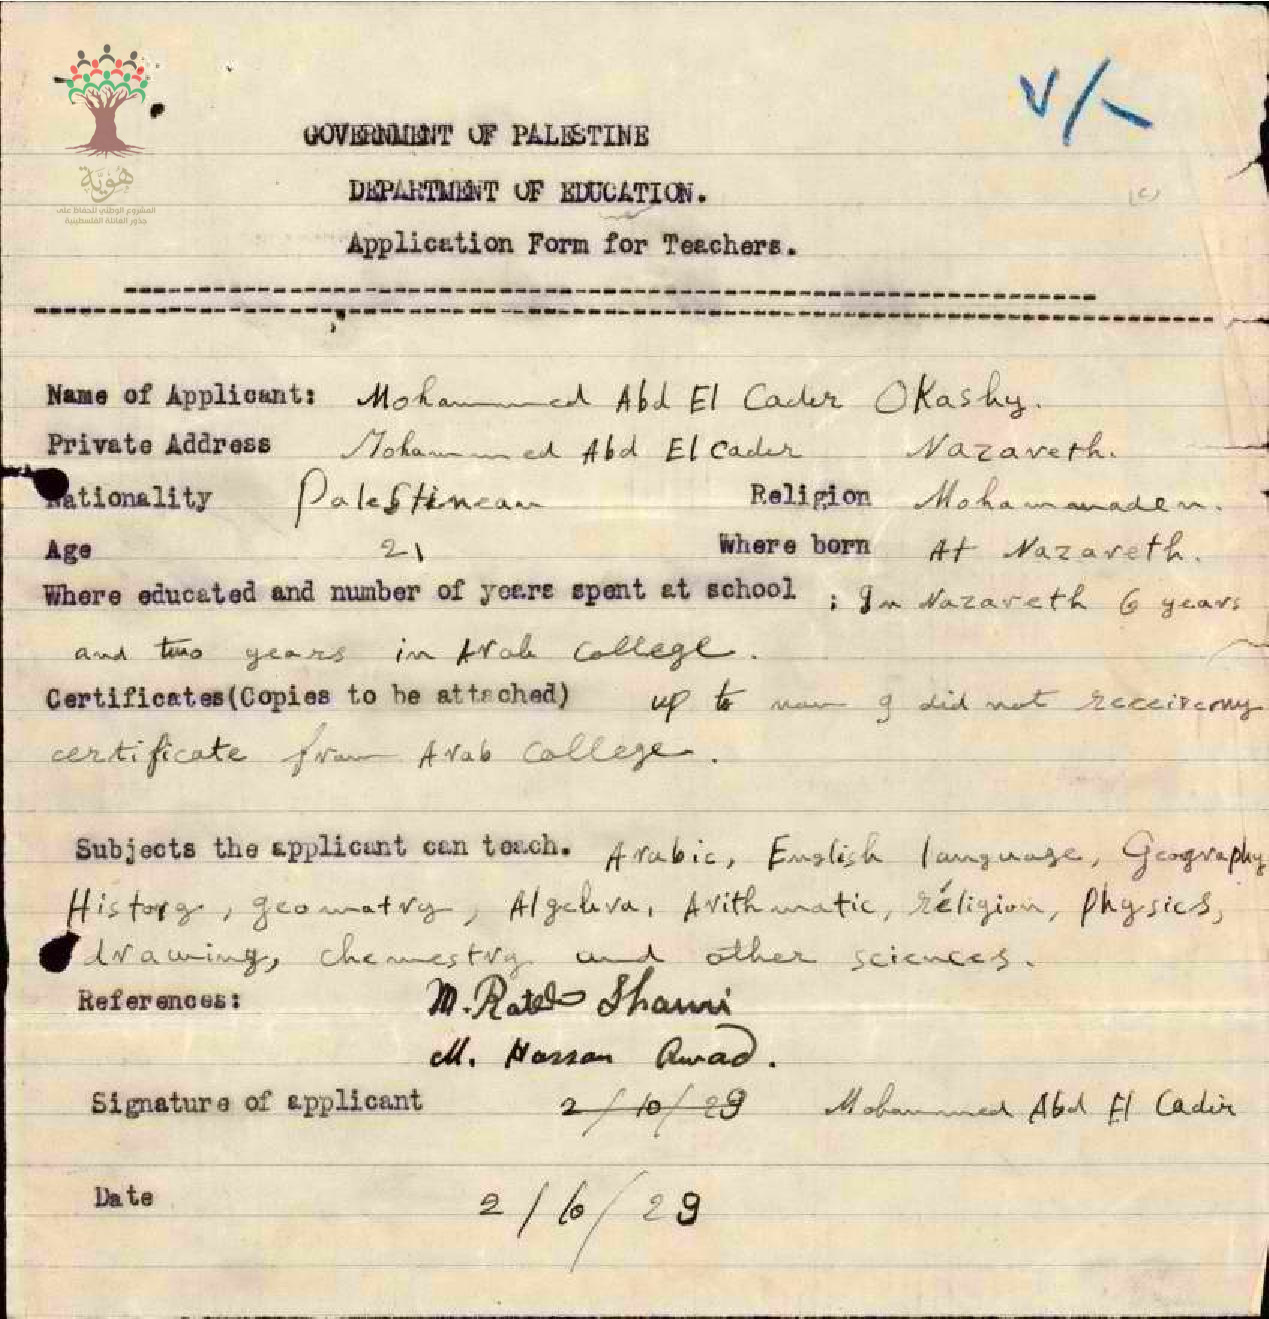 هُوِيَّة
المشروع الوطني للحفاظ على
جذور العائلة الفلسطينية
GOVERNMENT OF PALESTINE
DEPARTMENT OF EDUCATION.
(c)
Application Form for Teachers.
Name of Applicant: Mohammed Abd El Cader OKashy.
Private Address Mohammed Abd El Cader Nazareth.
Nationality Palestinean Religion Mohammaden.
Age 21 Where born At Nazareth.
Where educated and number of years spent at school : In Nazareth 6 years
and two years in Arab College.
Certificates(Copies to be attached) up to now I did not receive my
certificate from Arab College.
Subjects the applicant can teach. Arabic, English language, Geography
History, geomatry, Algebra, Arithmatic, réligion, Physics,
drawing, chemestry and other sciences.
References: M. Shawi
M. Hassan Awad.
Signature of applicant 2/10/29 Mohammed Abd El Cader
Date 2/10/29